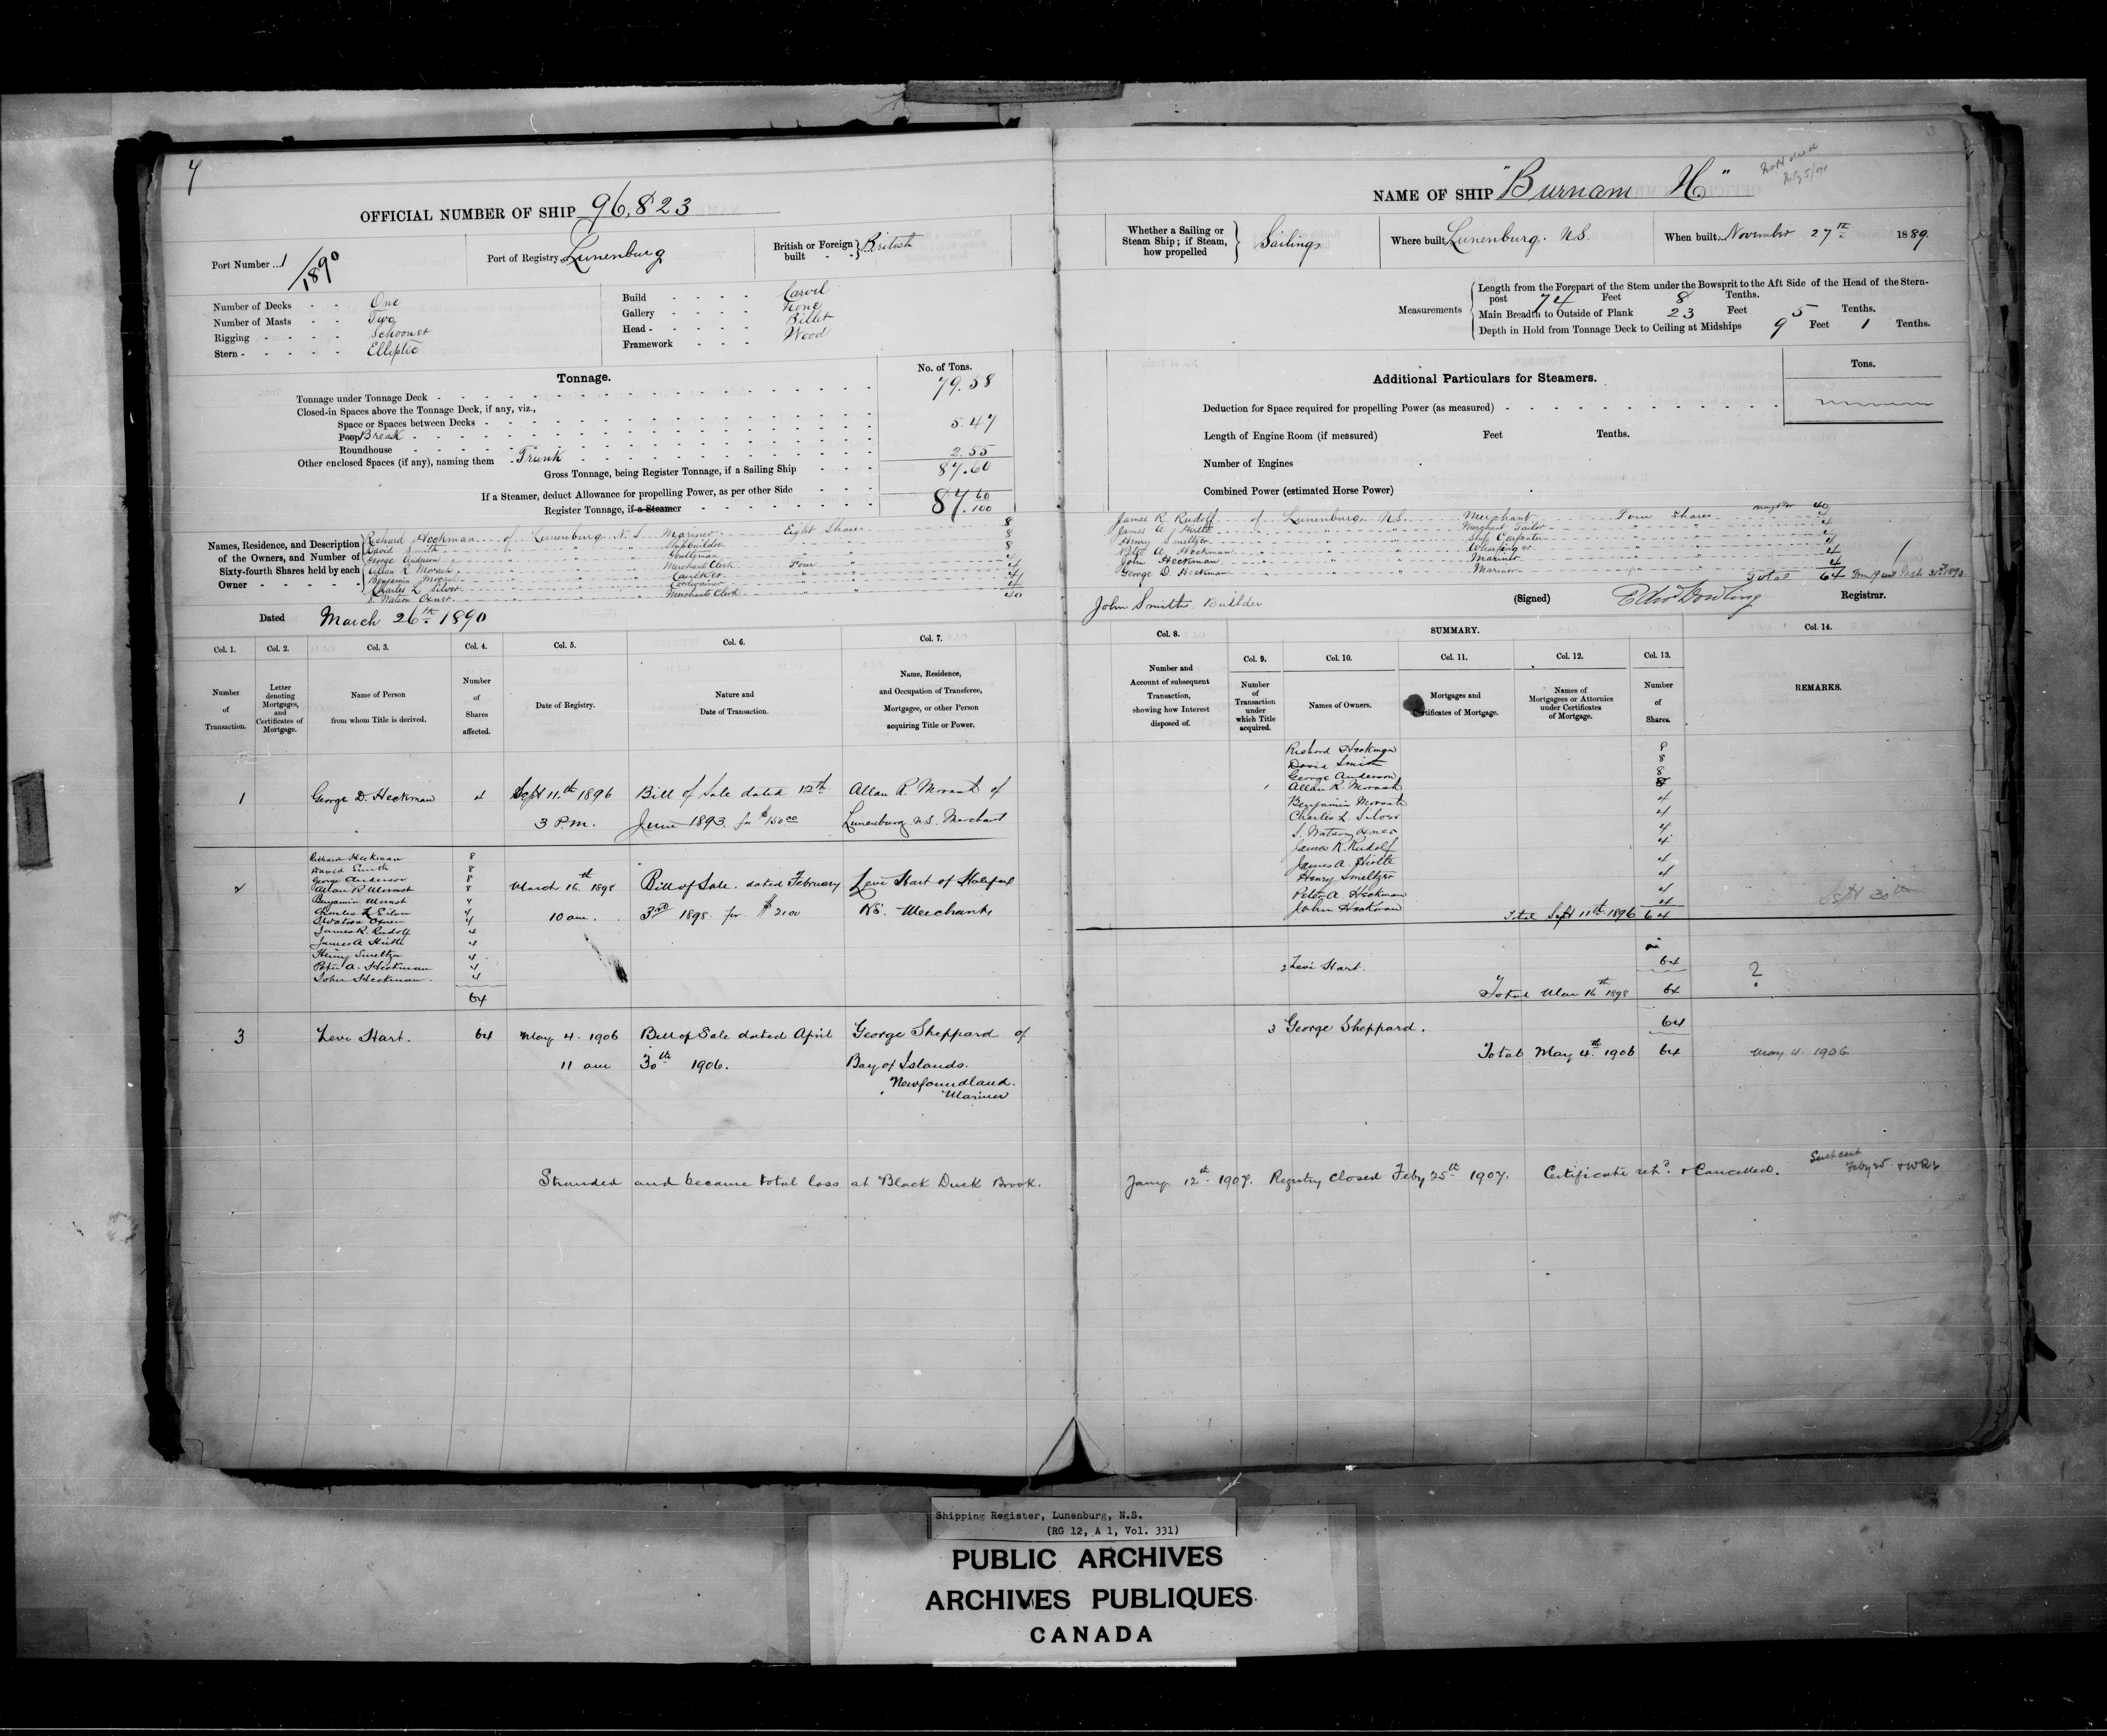 4
OFFICIAL NUMBER OF SHIP 96,823
Port Number 1/1890
Port of Registry Lunenburg
British or Foreign built British
Number of Decks One
Number of Masts Two
Rigging Schooner
Stern Elliptic
Build Carvel
Gallery None
Head Billet
Framework Wood
Tonnage.
No. of Tons.
Tonnage under Tonnage Deck 79.58
Closed-in Spaces above the Tonnage Deck, if any, viz.,
Space or Spaces between Decks
Poop Break 5.47
Roundhouse
Other enclosed Spaces (if any), naming them Trunk 2.55
Gross Tonnage, being Register Tonnage, if a Sailing Ship 87.60
If a Steamer, deduct Allowance for propelling Power, as per other Side
Register Tonnage, if a Steamer 87. 60/100
Names, Residence, and Description of the Owners, and Number of Sixty-fourth Shares held by each Owner
Richard Heckman of Lunenburg N.S. Mariner Eight Shares 8
David Smith " " Shipbuilder " " 8
George Anderson " " Gentleman " " 8
Allan R Morash " " Merchants Clerk Four " 4
Benjamin Morash " " Caulker " " 4
Charles L Silver " " Cordwainer " " 4
S. Watson Oxner " " Merchants Clerk " " 4
40
Dated March 26th 1890
Col. 1. Col. 2. Col. 3. Col. 4. Col. 5. Col. 6. Col. 7.
Number of Transaction.
Letter denoting Mortgages, and Certificates of Mortgage.
Name of Person from whom Title is derived.
Number of Shares affected.
Date of Registry.
Nature and Date of Transaction.
Name, Residence, and Occupation of Transferee, Mortgagee, or other Person acquiring Title or Power.
1 George D. Heckman 4 Sept 11th 1896 Bill of Sale dated 12th Allan R. Morash of
3 P.m. June 1893. for $150.00 Lunenburg N.S. Merchant
2
Richard Heckman 8
David Smith 8
George Anderson 8
Allan R Morash 8
Benjamin Morash 4
Charles L 4
S Watson Oxner 4
James R. Rudolf 4
James A Hirtle 4
Henry Smeltzer 4
Peter A. Heckman 4
John Heckman. 4
64
March 16th 1898 Bill of Sale. dated February Levi Hart of Halifax
10 am. 3rd 1898 for $2100 NS. Merchant,
3 Levi Hart. 64 May 4. 1906 Bill of Sale dated April George Sheppard of
11 am 30th 1906. Bay of Islands.
Newfoundland.
Mariner
Stranded and became total loss at Black Duck Brook.
NAME OF SHIP "Burnam H"
July 5/90
Whether a Sailing or Steam Ship; if Steam, how propelled Sailing
Where built Lunenburg. N.S.
When built November 27th 1889.
Measurements
Length from the Forepart of the Stem under the Bowsprit to the Aft Side of the Head of the Stern-post 74 Feet 8 Tenths.
Main Breadth to Outside of Plank 23 Feet 5 Tenths.
Depth in Hold from Tonnage Deck to Ceiling at Midships 9 Feet 1 Tenths.
Additional Particulars for Steamers.
Tons.
Deduction for Space required for propelling Power (as measured)
Length of Engine Room (if measured) Feet Tenths.
Number of Engines
Combined Power (estimated Horse Power)
James R Rudolf of Lunenburg. N.S. Merchant Four Shares 4
James A Hirtle " " Merchant Tailor " " 4
Henry Smeltzer " " Ship Carpenter " " 4
Peter A Heckman " " Wharfinger " " 4
John Heckman " " Mariner " " 4
George D. Heckman " " Mariner " " 4
Total 64
John Smith, Builder
(Signed) Registrar.
Col. 8. SUMMARY. Col. 14.
Col. 9. Col. 10. Col. 11. Col. 12. Col. 13.
Number and Account of subsequent Transaction, showing how Interest disposed of.
Number of Transaction under which Title acquired.
Names of Owners.
Mortgages and Certificates of Mortgage.
Names of Mortgagees or Attornies under Certificates of Mortgage.
Number of Shares.
REMARKS.
Richard Heckman 8
David Smith 8
George Anderson 8
1 Allan R. Morash 8
Benjamin Morash 4
Charles L. Silver 4
S. Watson Oxner 4
James R. Rudolf 4
James A. Hirtle 4
Henry Smeltzer 4
Peter A. Heckman 4
John Heckman 4
Total Sept 11th 1896 64
Sept 30th
2 Levi Hart. 64
?
Total Mar 16th 1898 64
3 George Sheppard. 64
Total May 4th 1906 64 May 4. 1906
Jany 12th 1907. Registry closed Feby 25th 1907. Certificate retd. & Cancelled.
Sent cert Feby 25
Shipping Register, Lunenburg, N.S.
(RG 12, A 1, Vol. 331)
PUBLIC ARCHIVES
ARCHIVES PUBLIQUES
CANADA